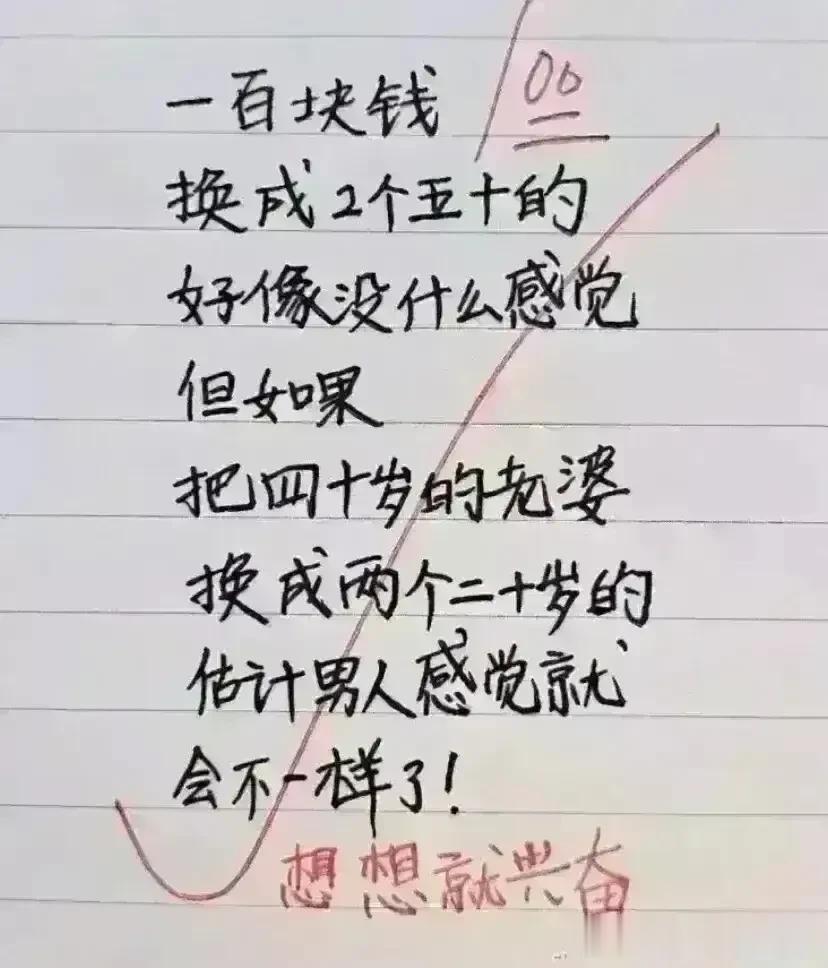 一百块钱
100
换成2个五十的
好像没什么感觉
但如果
把四十岁的老婆
换成两个二十岁的
估计男人感觉就
会不一样了!
想想就兴奋